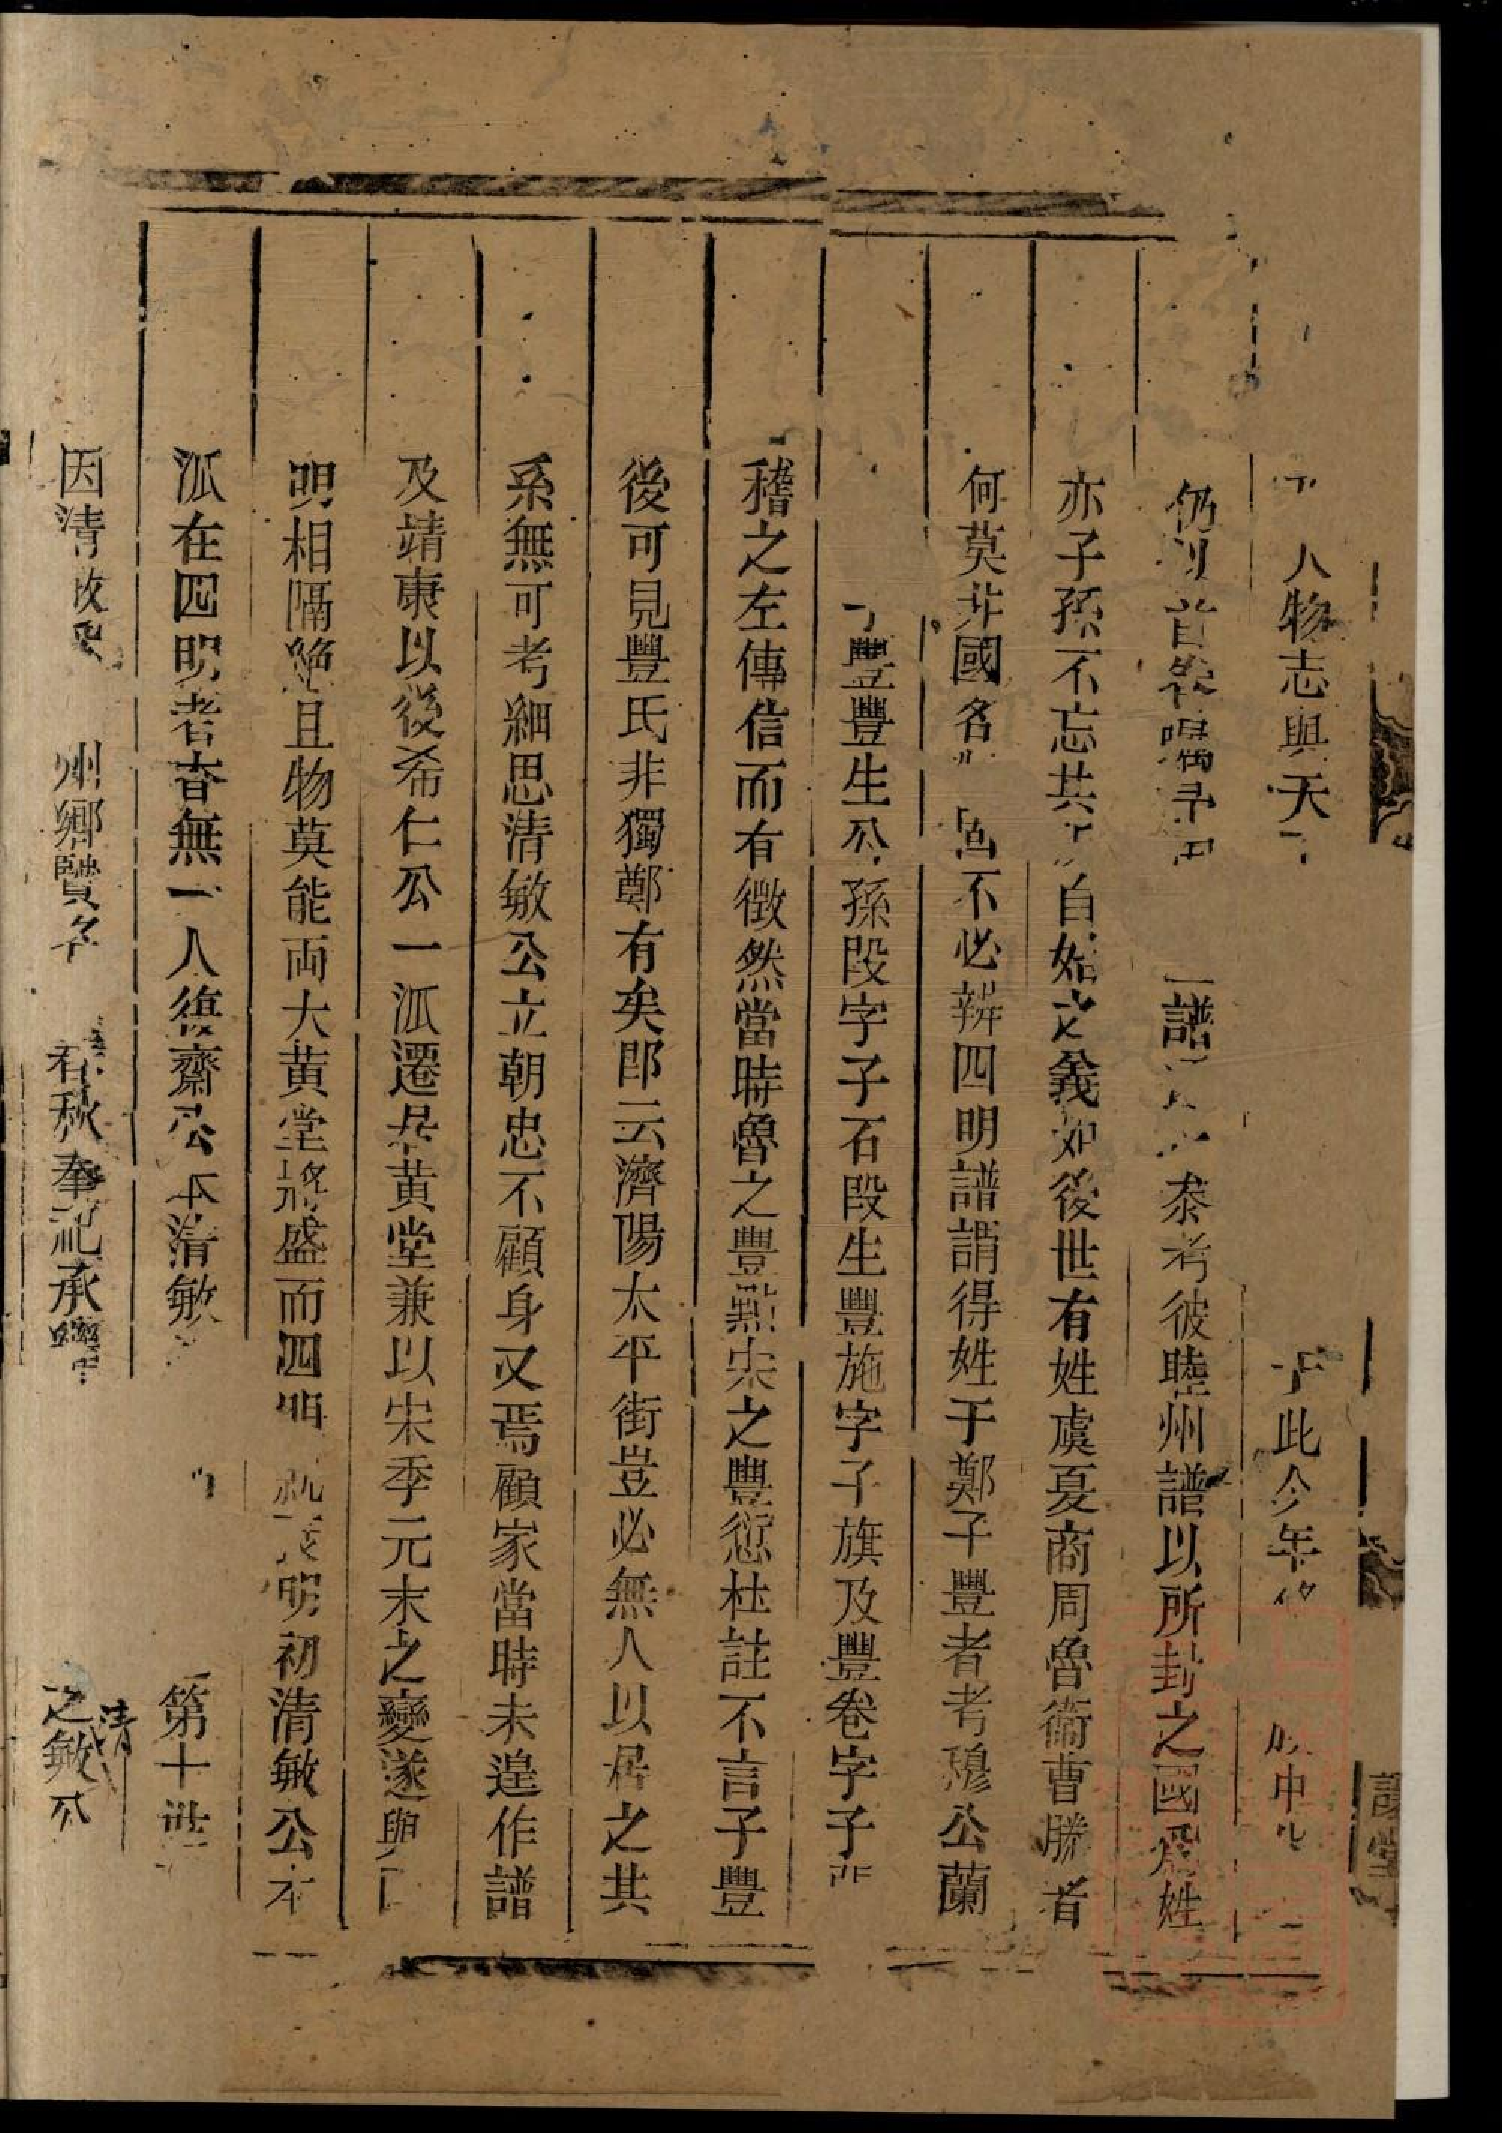 謨堂
人物志與天
于此今年修
中
仍以
譜
泰考彼睦州譜以所封之國爲姓
亦子孫不忘其
自始之義如後世有姓虞夏商周魯衞曹滕者
何莫非國名
不必辨四明譜謂得姓于鄭子豐者考穆公蘭
子豐豐生公孫段字子石段生豐施字子旗及豐卷字子張
稽之左傳信而有徵然當時魯之豐點宋之豐愆杜註不言子豐
後可見豐氏非獨鄭有矣郎云濟陽太平街豈必無人以居之其
系無可考細思清敏公立朝忠不顧身又焉顧家當時未遑作譜
及靖康以後希仁公一派遷居黃堂兼以宋季元末之變遂與四
明相隔絶且物莫能両大黃堂將盛而四明就衰明初清敏公本
派在四明者杳無一人復齋公本清敏
第十世
因清敏
州鄉賢名
春秋奉祀承
清敏公